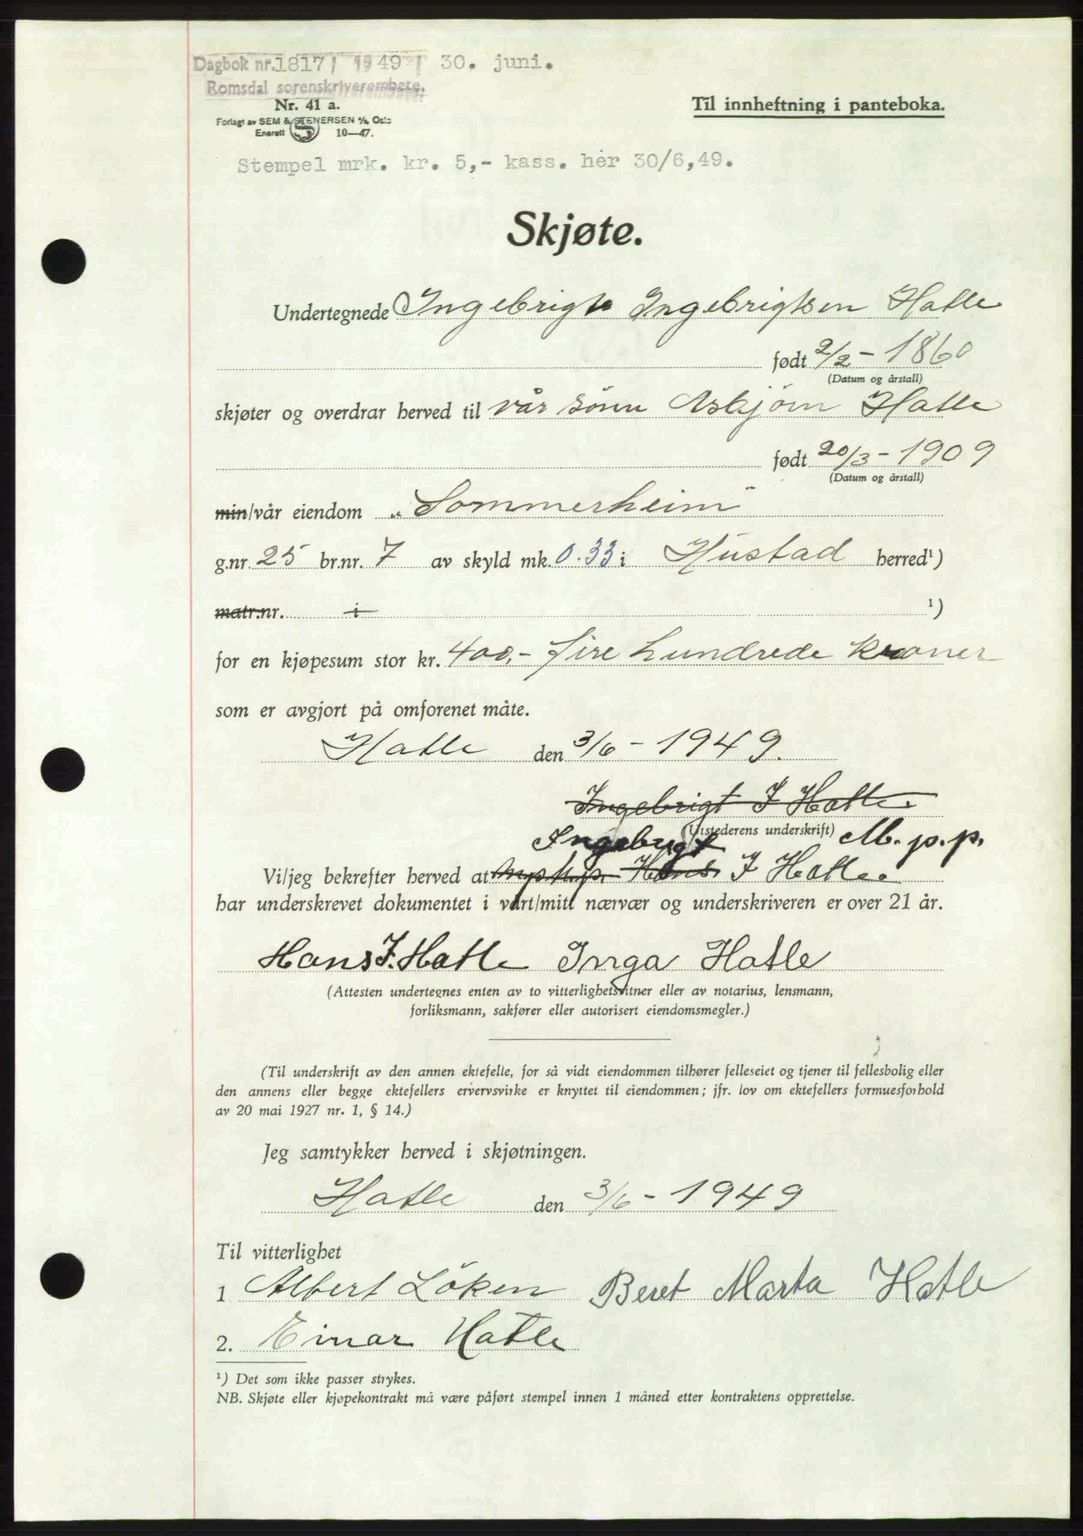 Dagbok nr. 1817 / 1949 / 30. juni.
Romsdal sorenskriverembete.
Nr. 41 a.
Til innheftning i panteboka.
Forlagt av SEM & STENERSEN A/S, Oslo
Enerett S 10—47.
Stempel mrk. kr. 5,- kass. her 30/6,49.
Skjøte.
Undertegnede Ingebrigt Ingebrigtsen Hatle
født 2/2 - 1860
(Datum og årstall)
skjøter og overdrar herved til vår sönn Asbjörn Hatle
født 20/3 - 1909
(Datum og årstall)
min/vår eiendom „Sommerheim"
g.nr. 25 br.nr. 7 av skyld mk. 0.33 i Hustad herred¹)
matr.nr. i ¹)
for en kjøpesum stor kr. 400,- fire hundrede kroner
som er avgjort på omforenet måte.
Hatle den 3/6 - 1949.
Ingebrigt I Hatle
(Utstederens underskrift)
Ingebrigt M. p. p.
Vi/jeg bekrefter herved at Hans I Hatle
har underskrevet dokumentet i vårt/mitt nærvær og underskriveren er over 21 år.
Hans I. Hatle Inga Hatle
(Attesten undertegnes enten av to vitterlighetsvitner eller av notarius, lensmann,
forliksmann, sakfører eller autorisert eiendomsmegler.)
(Til underskrift av den annen ektefelle, for så vidt eiendommen tilhører felleseiet og tjener til fellesbolig eller
den annens eller begge ektefellers ervervsvirke er knyttet til eiendommen; jfr. lov om ektefellers formuesforhold
av 20 mai 1927 nr. 1, § 14.)
Jeg samtykker herved i skjøtningen.
Hatle den 3/6 - 1949
Til vitterlighet
1 Albert Löken Beret Marta Hatle
2. Einar Hatle
¹) Det som ikke passer strykes.
NB. Skjøte eller kjøpekontrakt må være påført stempel innen 1 måned etter kontraktens opprettelse.